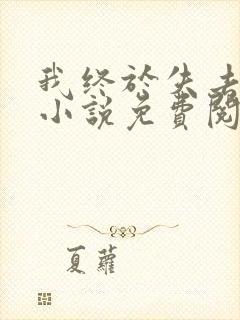 我终於失去
小說免費閱
夏蘿